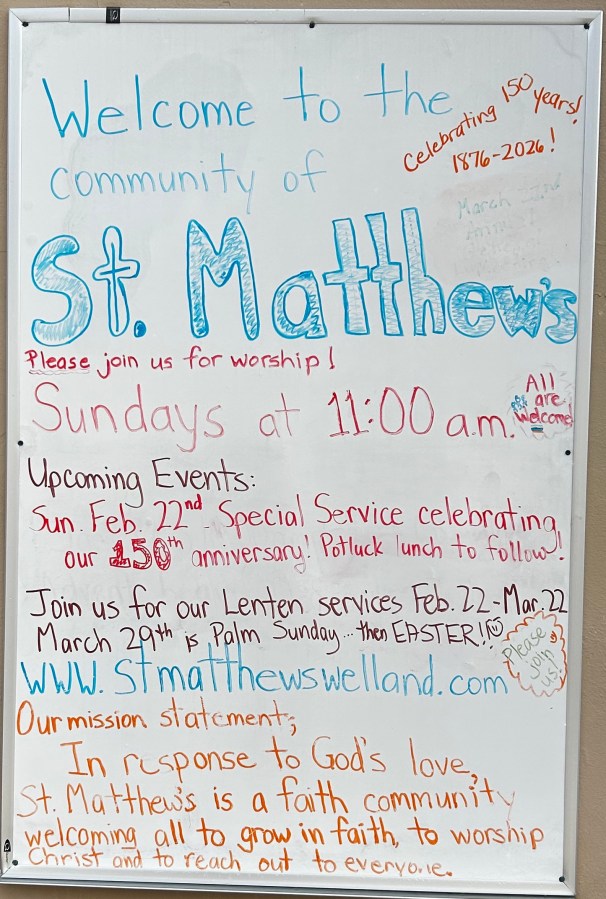 Welcome to the
community of
Celebrating 150 years!
1876-2026!
March
St. Matthew's
Please join us for worship!
Sundays at 11:00 a.m.
All
are
Welcome!
Upcoming Events:
Sun. Feb. 22nd. Special Service celebrating
our 150th anniversary! Potluck lunch to follow!
Join us for our Lenten services Feb. 22-Mar. 22
March 29th is Palm Sunday...then EASTER!!
www.stmatthewswelland.com
Please
join
us!
Our mission statement;
In response to God's love,
St. Matthew's is a faith community
welcoming all to grow in faith, to worship
Christ and to reach out to everyone.